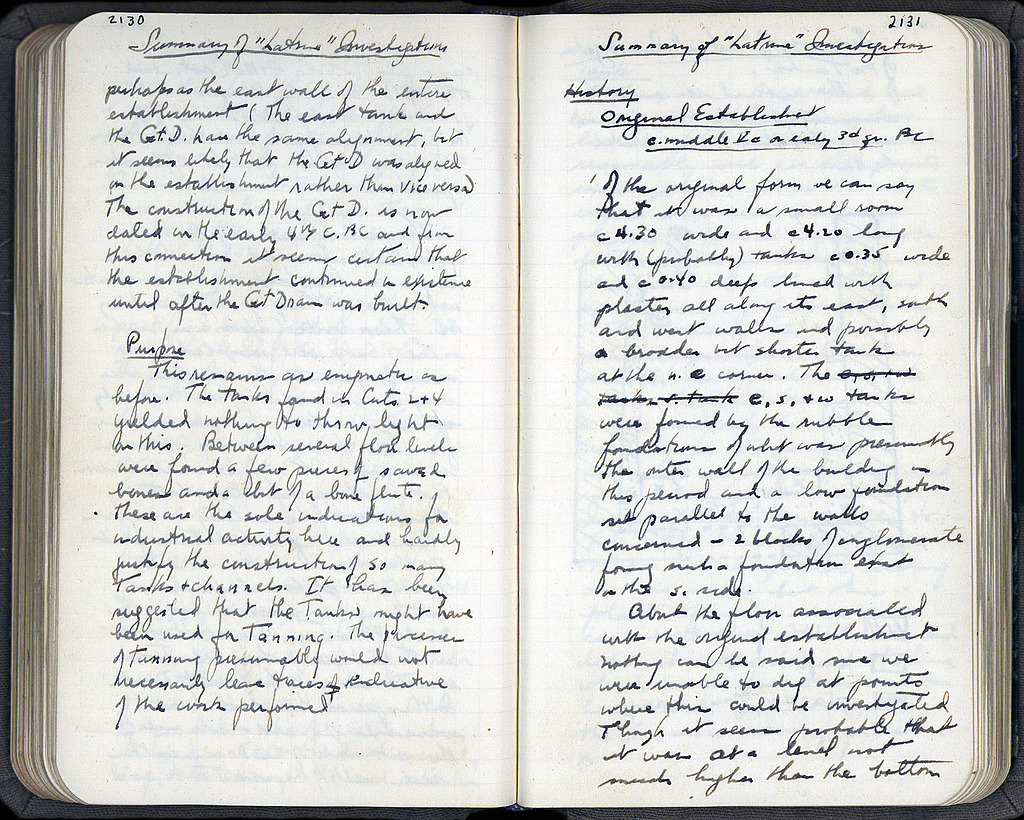 2130
Summary of "Latrine" Investigations
perhaps as the east wall of the entire
establishment (The east tank and
the Gt. D. have the same alignment, but
it seems likely that the Gt D was aligned
on the establishment rather than vice versa)
The construction of the Gt D. is now
dated in the early 4th C. BC and from
this connection it seems certain that
the establishment continued in existence
until after the Gt Drain was built.
Purpose
This remains as enigmatic as
before. The tanks found in Cuts 2+4
yielded nothing to throw light
on this. Between several floor levels
were found a few pieces of sawed
bones and a bit of a bone flute.
These are the sole indications for
industrial activity here and hardly
justify the construction of so many
tanks + channels. It has been
suggested that the Tanks might have
been used for Tanning. The processes
of tanning presumably would not
necessarily leave traces indicative
of the work performed
2131
Summary of "Latrine" Investigation
History
Original Establishmet
c. middle Vc or early 3d qu. BC
Of the original form we can say
that it was a small room
c 4.30 wide and c 4.20 long
with (probably) tanks c 0.35 wide
and c 0.40 deep lined with
plaster all along its east, south
and west walls and possibly
a broader but shorter tank
at the n. e corner. The e, s, + w
tanks s. tank e, s, + w tanks
were formed by the rubble
foundations of what was presumably
the outer wall of the building in
this period and a low foundation
set parallel to the walls
concerned – 2 blocks of conglomerate
forming such a foundation exist
on the s. side.
About the floor associated
with the original establishment
nothing can be said since we
were unable to dig at points
where this could be investigated
Though it seems probable that
it was at a level not
much higher than the bottom